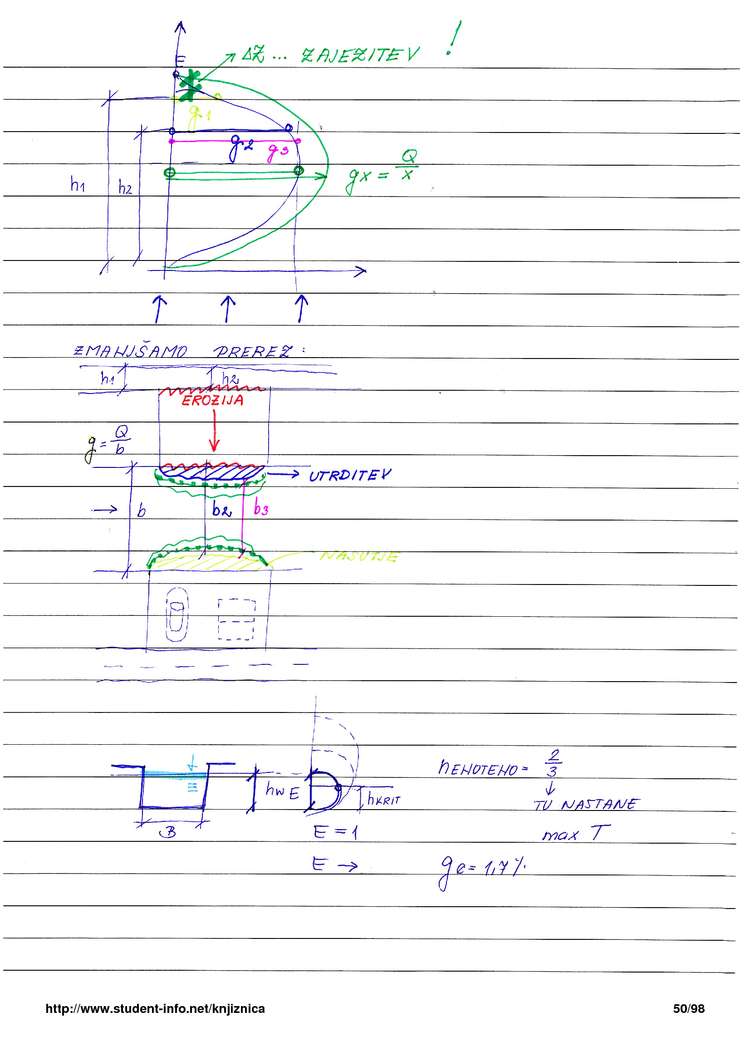 E
ΔZ ... ZAJEZITEV !
g1
g2
g3
h1
h2
gx = Q/x
ZMANJŠAMO PREREZ:
h1
h2
EROZIJA
g = Q/b
UTRDITEV
b
b2
b3
NASUTJE
hw
E
hKRIT
B
E = 1
E →
hENOTEHO = 2/3
↓
TU NASTANE
max T
ge = 1,7
http://www.student-info.net/knjiznica
50/98